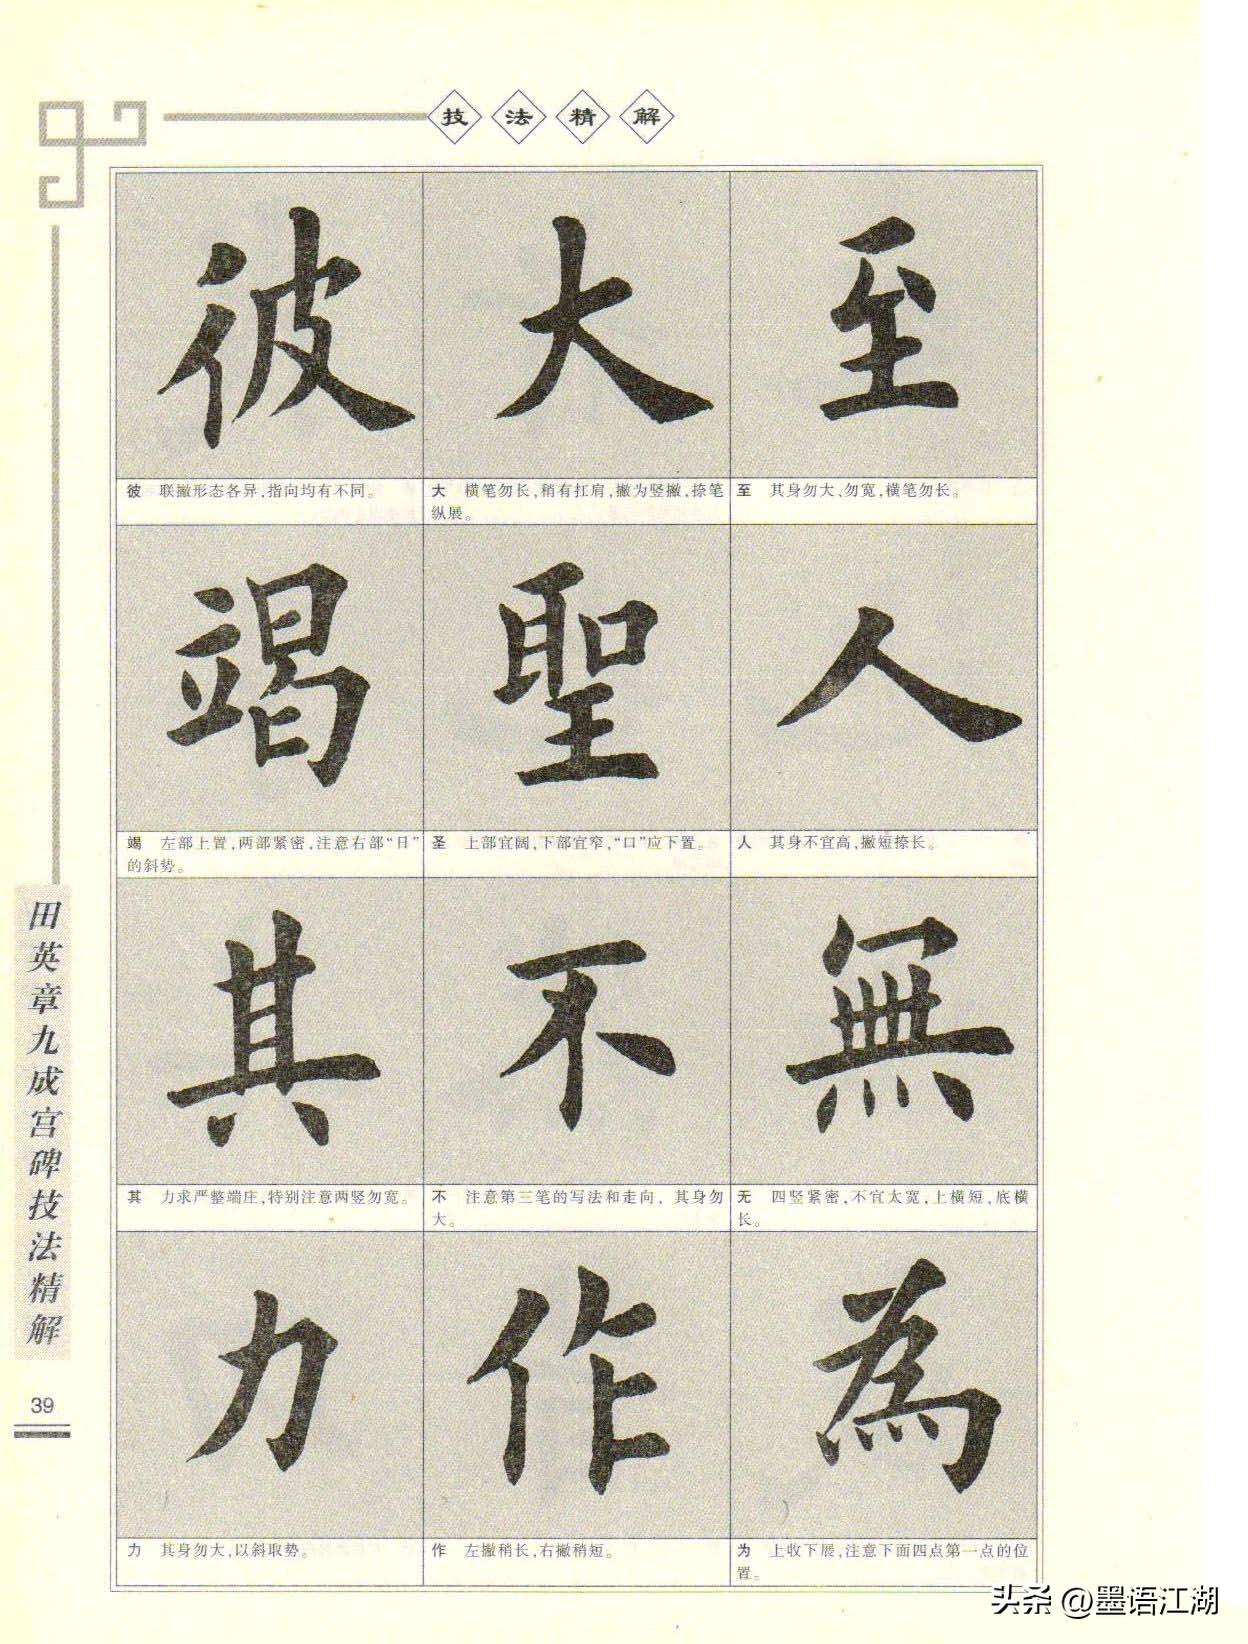 技法精解
彼 大 至
彼 联撇形态各异,指向均有不同。
大 横笔勿长,稍有扛肩,撇为竖撇,捺笔
纵展。
至 其身勿大、勿宽,横笔勿长。
竭 聖 人
竭 左部上置,两部紧密,注意右部“日”
的斜势。
圣 上部宜阔,下部宜窄,“口”应下置。
人 其身不宜高,撇短捺长。
其 不 無
其 力求严整端庄,特别注意两竖勿宽。
不 注意第三笔的写法和走向,其身勿
大。
无 四竖紧密,不宜太宽,上横短,底横
长。
力 作 為
力 其身勿大,以斜取势。
作 左撇稍长,右撇稍短。
为 上收下展,注意下面四点第一点的位
置。
田英章九成宫碑技法精解
39
头条 @墨语江湖